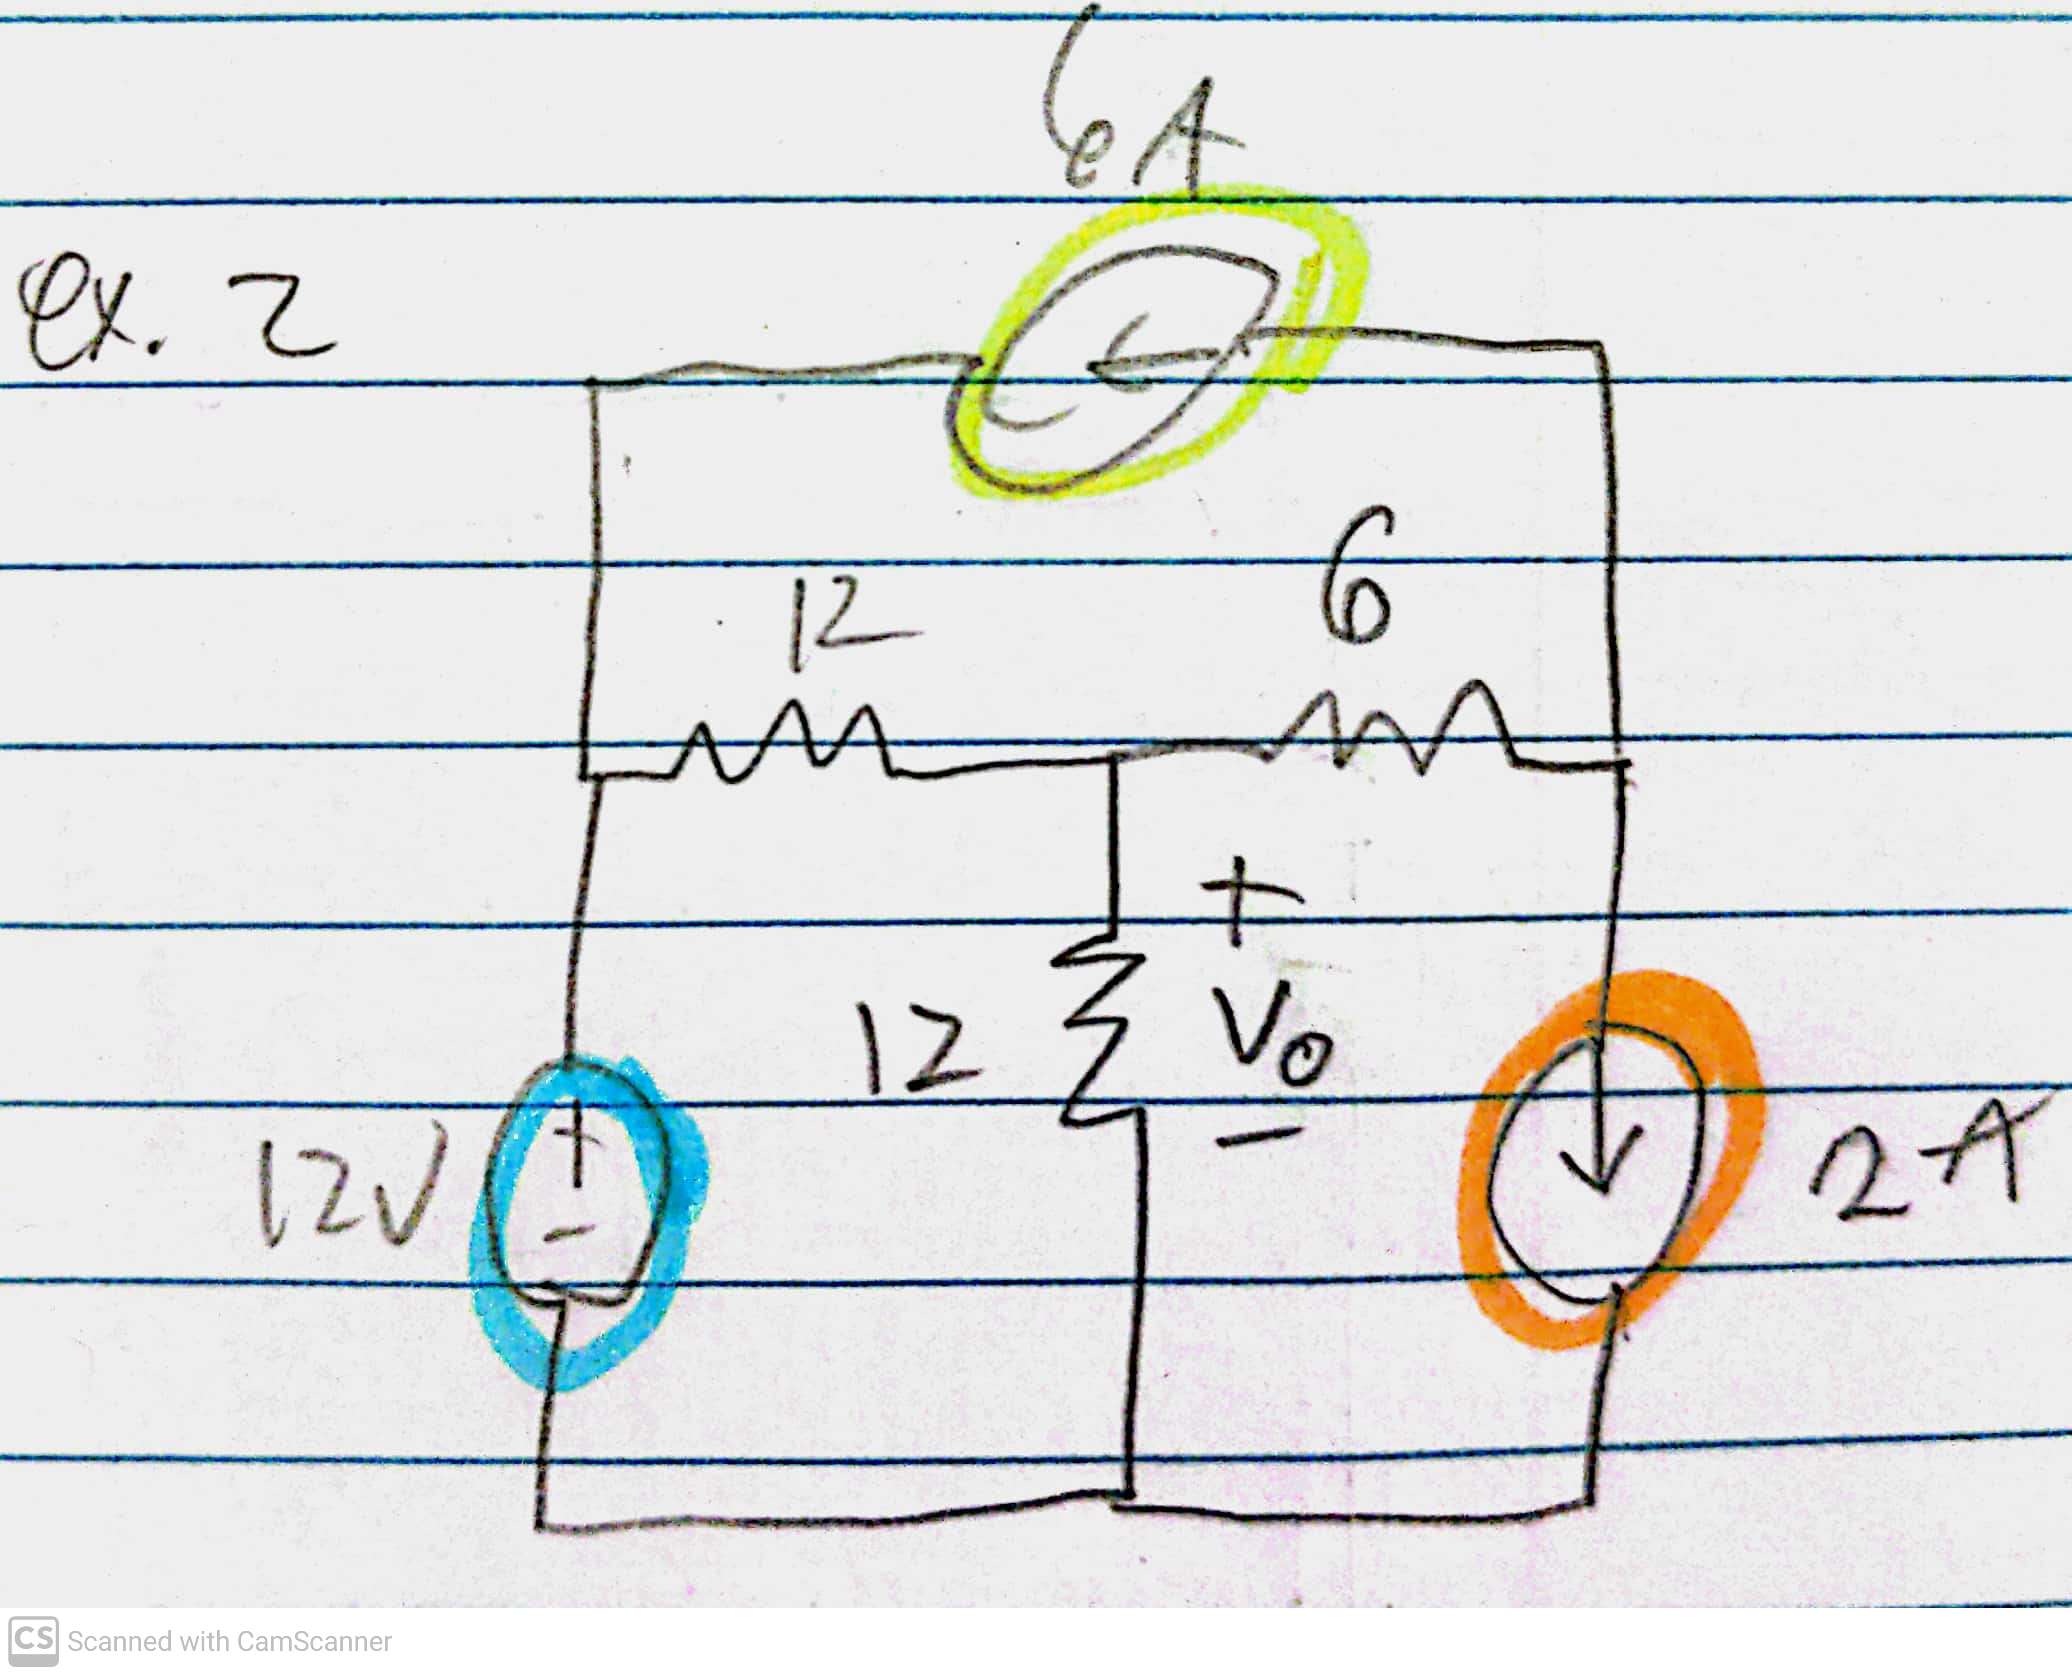 6A
ex. 2
12 6
+
12 Vo
-
12V + - 2A
CS Scanned with CamScanner